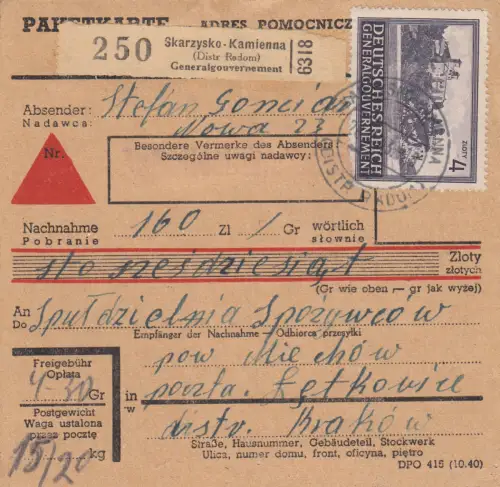 PAKETKARTE ADRES POMOCNICZ
250 Skarzysko-Kamienna
(Distr Radom)
Generalgouvernement
6318
DEUTSCHES REICH
GENERALGOUVERNEMENT
4 ZLOTY
(DISTR RADOM)
Absender: Stefan
Nadawca: Nowa 23
Nr.
Besondere Vermerke des Absenders
Szczególne uwagi nadawcy:
Nachnahme 160 Zl / Gr wörtlich
Pobranie słownie
sto sześdziesiąt Zloty
złotych
(Gr wie oben — gr jak wyżej)
An Spułdzielnia Spożywców
Do
Empfänger der Nachnahme - Odbiorca przesyłki
pow Miechów
Freigebühr
Opłata
4-30 Gr
in poczta. Łętkowice
w
Postgewicht
Waga ustalona
przez pocztę
15/20 kg
distr. Kraków
Straße, Hausnummer, Gebäudeteil, Stockwerk
Ulica, numer domu, front, oficyna, piętro
DPO 415 (10.40)